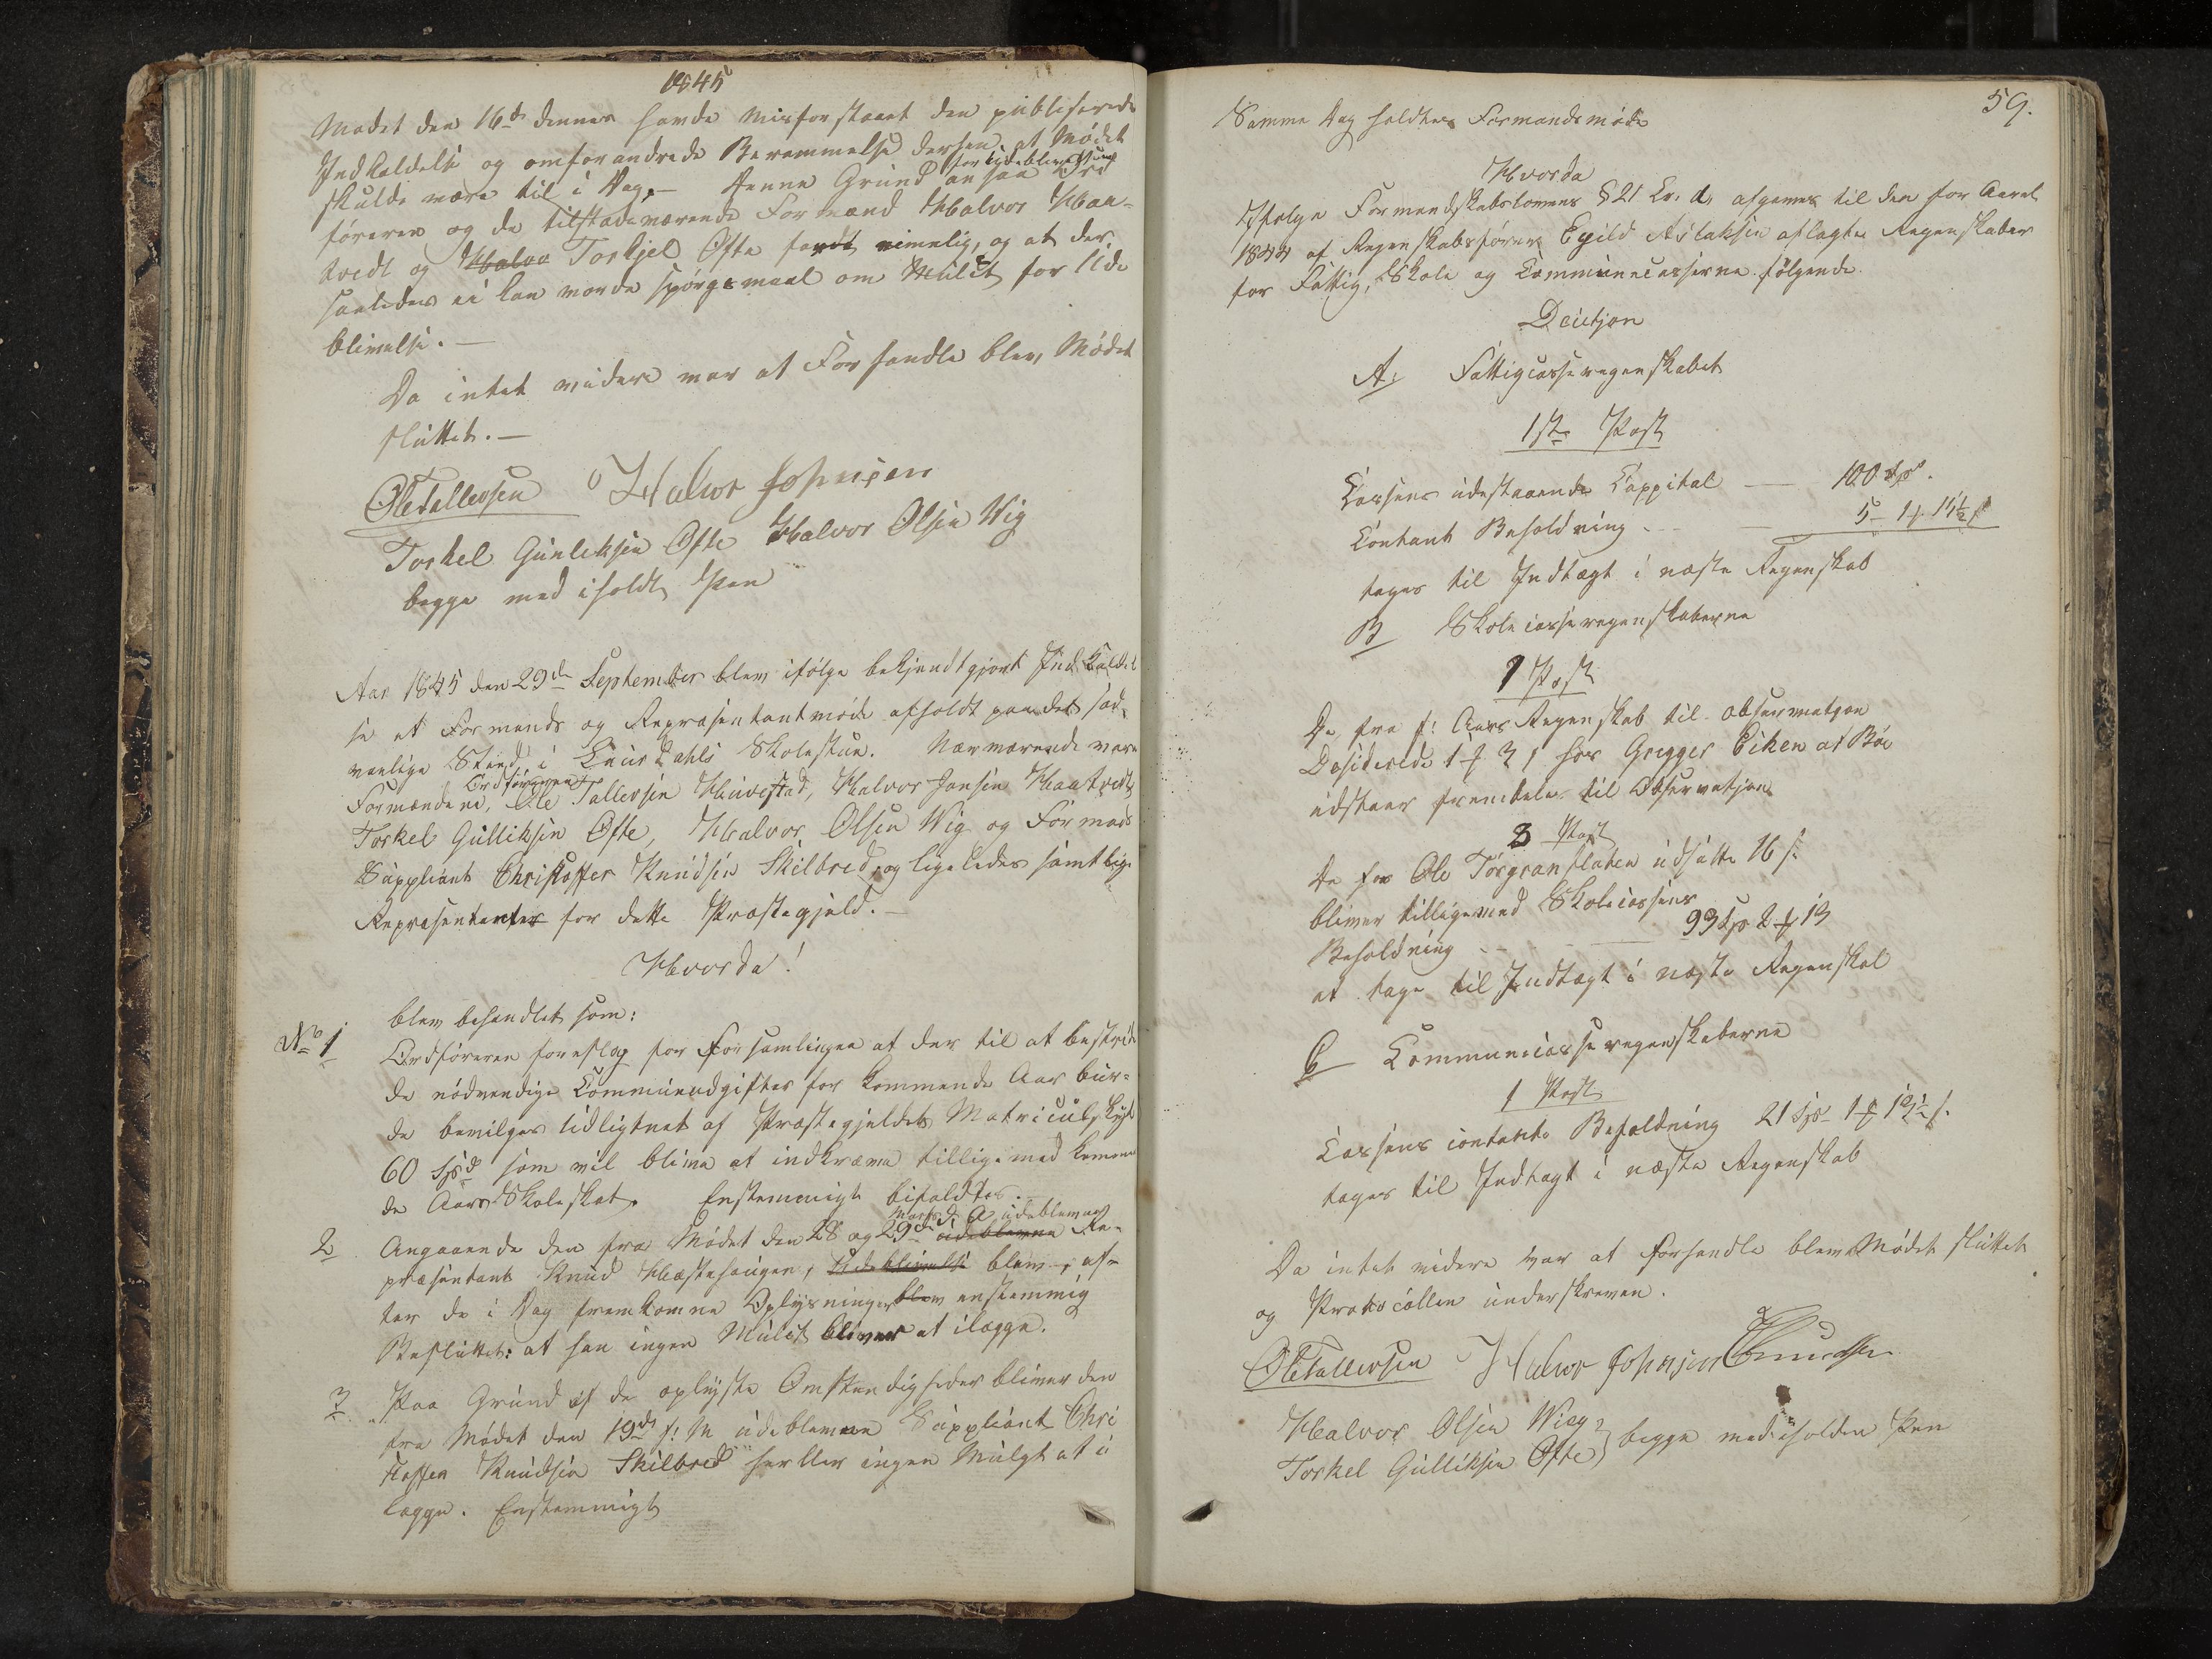 1845
Mødet den 16de dennes havde misforstaaet den publiserede
Indkaldelse og omforandrede Berammelse derhen, at Mødet
for Udeblivelsen
skulde være til i Dag. — Denne Grund ansaa Ord
føreren og de tilstædeværende Formænd Halvor Haa-
tvedt og Halvo Torkjel Ofte fordt rimelig, og at der
saaledes ei kan vorde spørgsmaal om Mulct for Ude
blivelse. —
Da intet videre var at Forhandle blev Mødet
sluttet. —
Ole Tallevsen Halvor Johnsen
Torkel Gunleksen Ofte Halvor Olsen Wig
begge med iholdt Pen
Aar 1845 den 29de September blev ifølge bekjendtgjort Indkaldel
se et Formands og Repræsentantmøde afholdt paa det sæd-
vanlige Sted i Dahls Skolestue. Nærværende vare
Ordføreren
Formændene, Ole Tallevsen Huvestad, Halvor Jonsen Haatvedt,
Torkel Gulliksen Ofte, Halvor Olsen Wig og Formands
Suppliant Christoffer Knudsen Skilbred, og ligeledes samtlige
Repræsentanter for dette Præstegjeld. —
Hvorda!
blev behandlet som:
No 1 Ordføreren foreslog for Forsamlingen at der til at bestride
de nødvendige Communeudgifter for kommende Aar bur-
de bevilges Udlignet af Præstegjeldets Matriculskyld
60 Spd som vil blive at indkræve tilligemed kommen
de Aars Skoleskat. Enstemmigt bifaldtes.
Marts d. A. udeblevne
2 Angaaende den fra Mødet den 28 og 29de udeblevne Re-
præsentant Knud Hæstehaugen, Udeblivelse blev, ef-
ter de i Dag fremkomne Oplysninger blev enstemmig
Besluttet: at han ingen Mulct bliver at ilægge.
3 Paa Grund af de oplyste Omstændigheder bliver den
fra Mødet den 19de f: M udeblevne Suppliant Chri
stoffer Knudsen Skilbred heller ingen Mulgt at i
lægge. Enstemmigt
59.
Samme Dag holdtes Formandsmøde
Hvorda
Ifølge Formandskabslovens § 21 Lr. d, afgaves til den for Aaret
1844 af Regnskabsfører Egild Aslaksen aflagte Regnskaber
for Fattig, Skole og Communecasserne følgende
Deicisjon
A: Fattigcasseregnskabet
1ste Post
Cassens udestaaende Cappital — 100 Spd.
Contant Beholdning — 5 - 1 # 15½ s
tages til Indtægt i næste Regnskab
B Skolecasseregnskaberne
1 Post
De fra f: Aars Regnskab til observation
Desiderede 1 # 3 s hos Gregger Eiken af Bøe
udstaar fremdeles til Observatjon
3 Post
De for Ole Torgransflaten udsatte 16 s.
bliver tilligemed Skolecassens
Beholdning — 93 Spd 2 # 13
at tage til Indtægt i næste Regnskab
C Communecasseregnskaberne
1 Post
Cassens contante Beholdning 21 Spd 1 # 13½ s.
tages til Indtægt i næste Regnskab
Da intet videre var at forhandle blev Mødet sluttet
og Protocollen underskreven.
Ole Tallevsen Halvor Johnsen CKnudsen
Halvor Olsen Wieg
Torkel Gulliksen Ofte } begge med iholden Pen